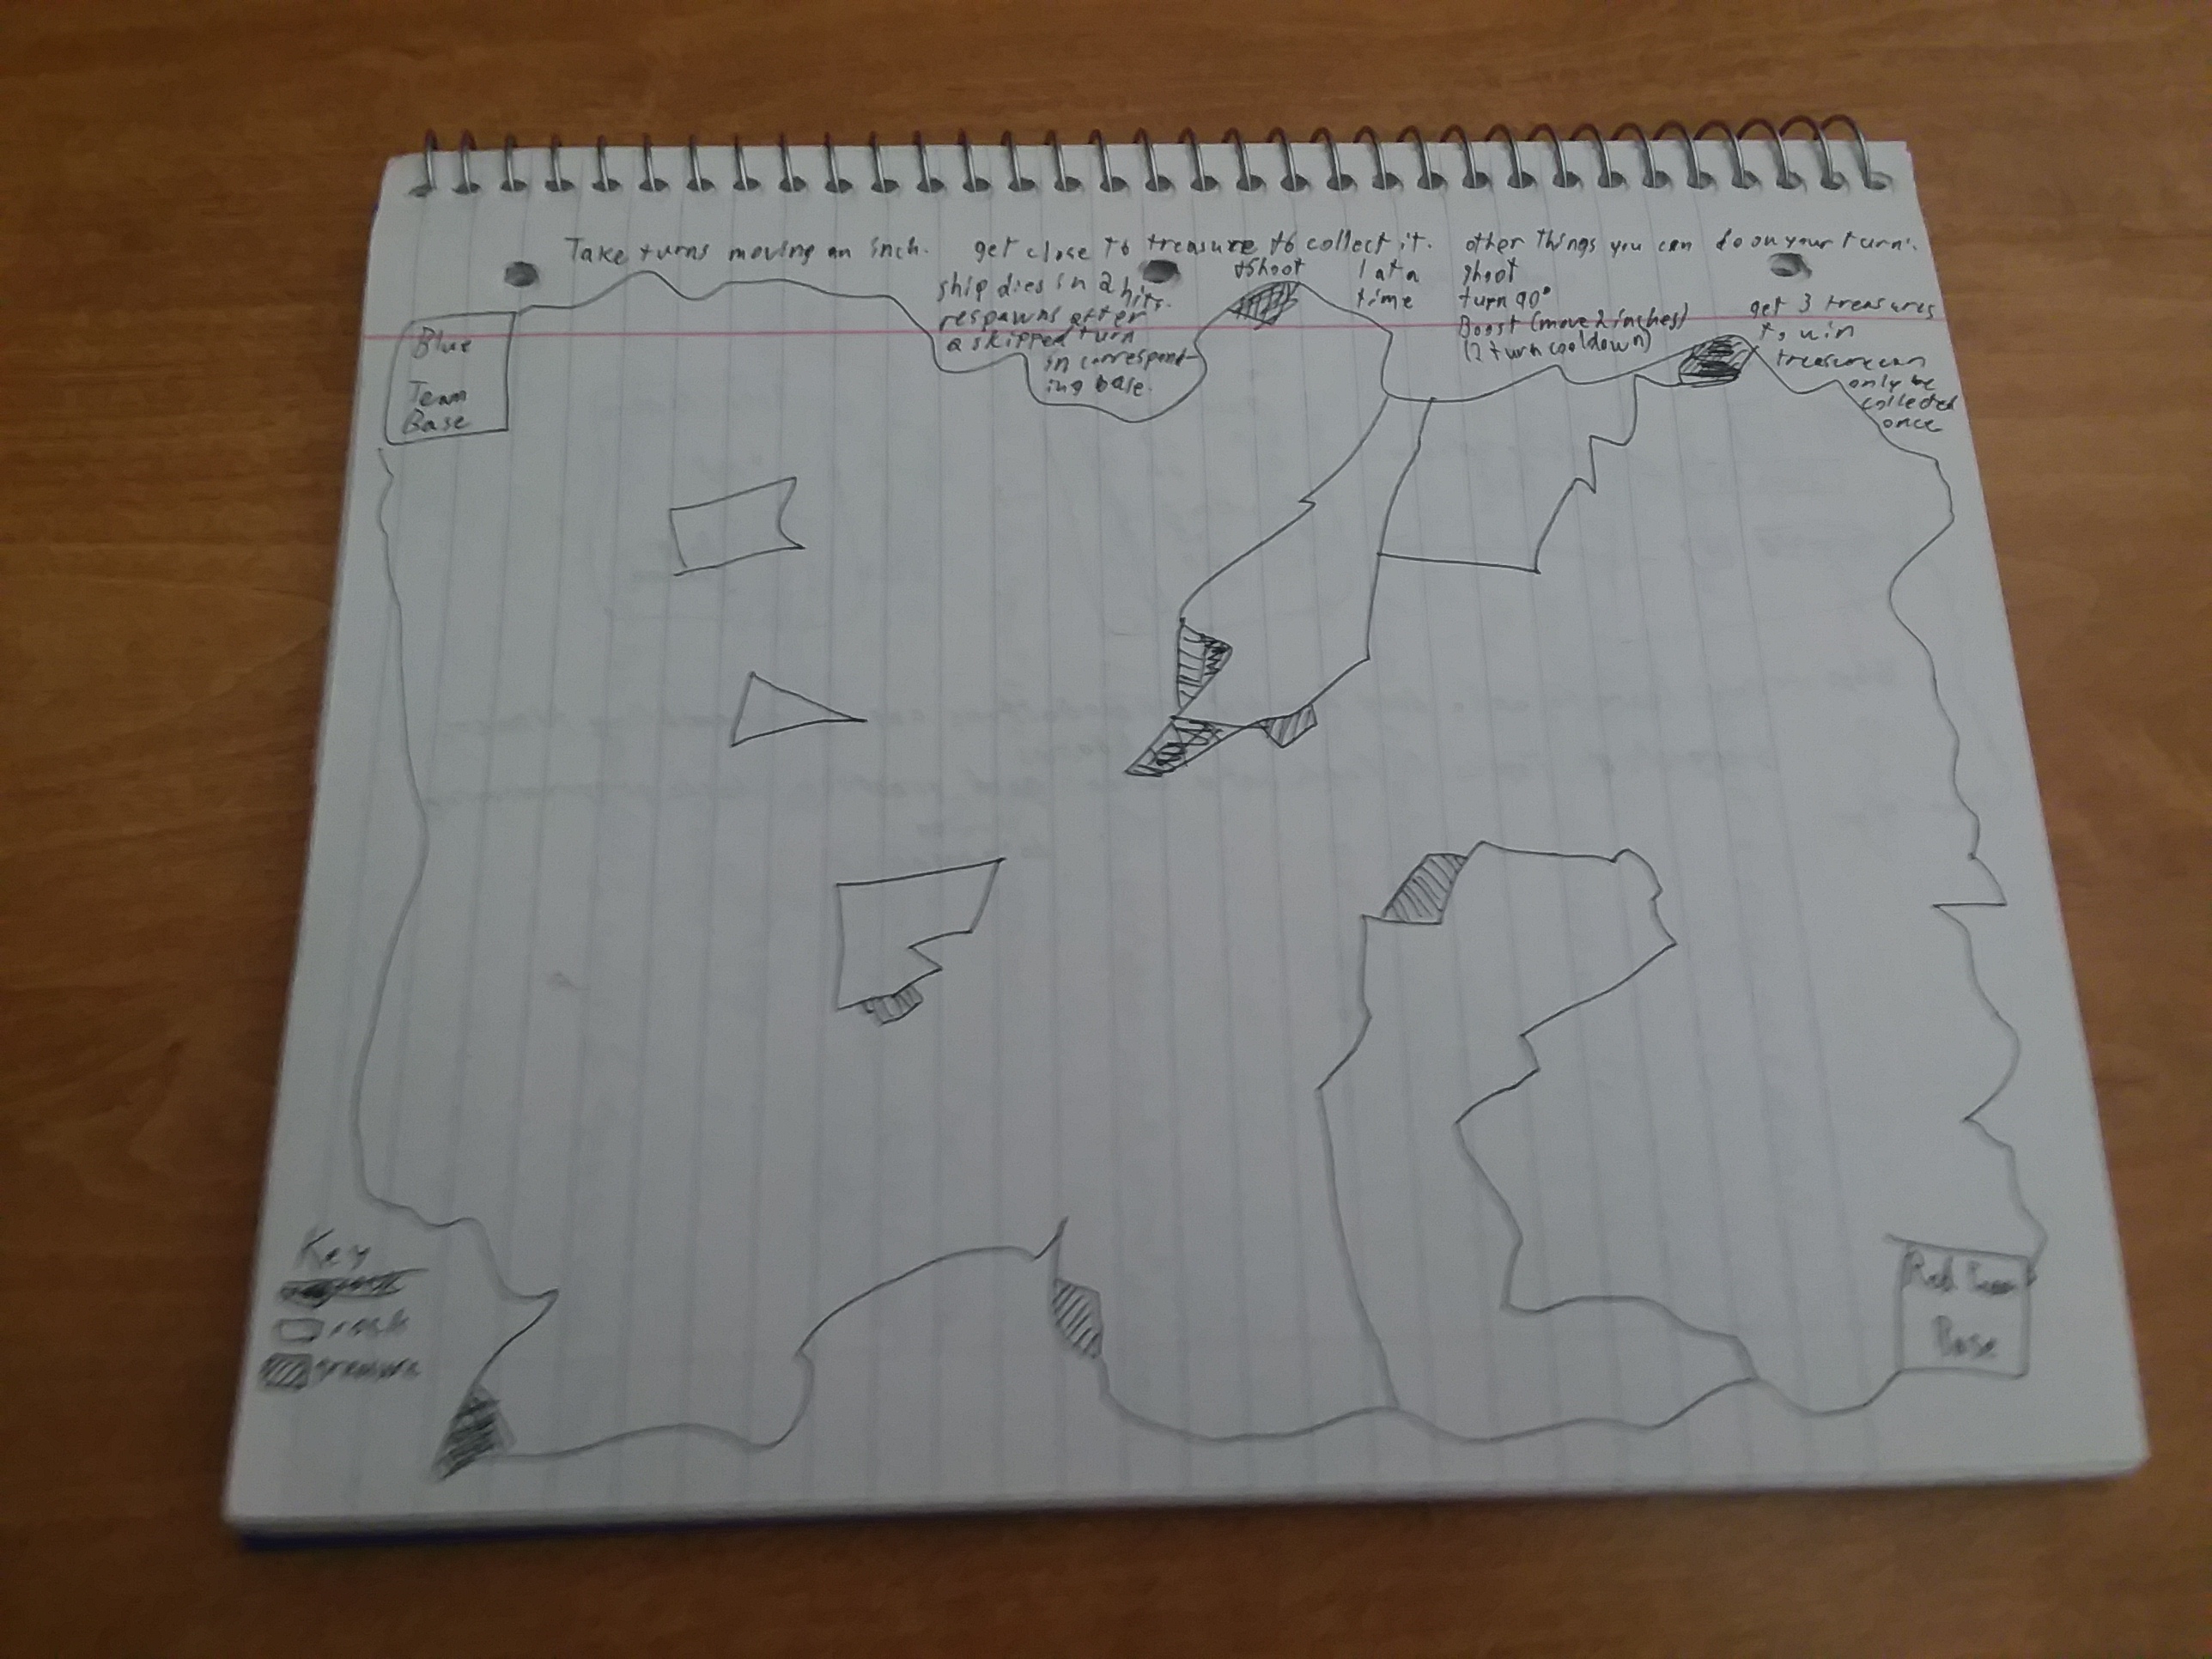 Take turns moving an inch. get close to treasure to collect it. other things you can do on your turn:
ship dies in 2 hits.
respawns after
a skipped turn
in correspond-
ing base.
+shoot
1 at a
time
shoot
turn 90°
Boost (move 2 inches)
(2 turn cooldown)
get 3 treasures
to win
treasure can
only be
collected
once
Blue
Team
Base
Key
rock
treasure
Red Team
Base